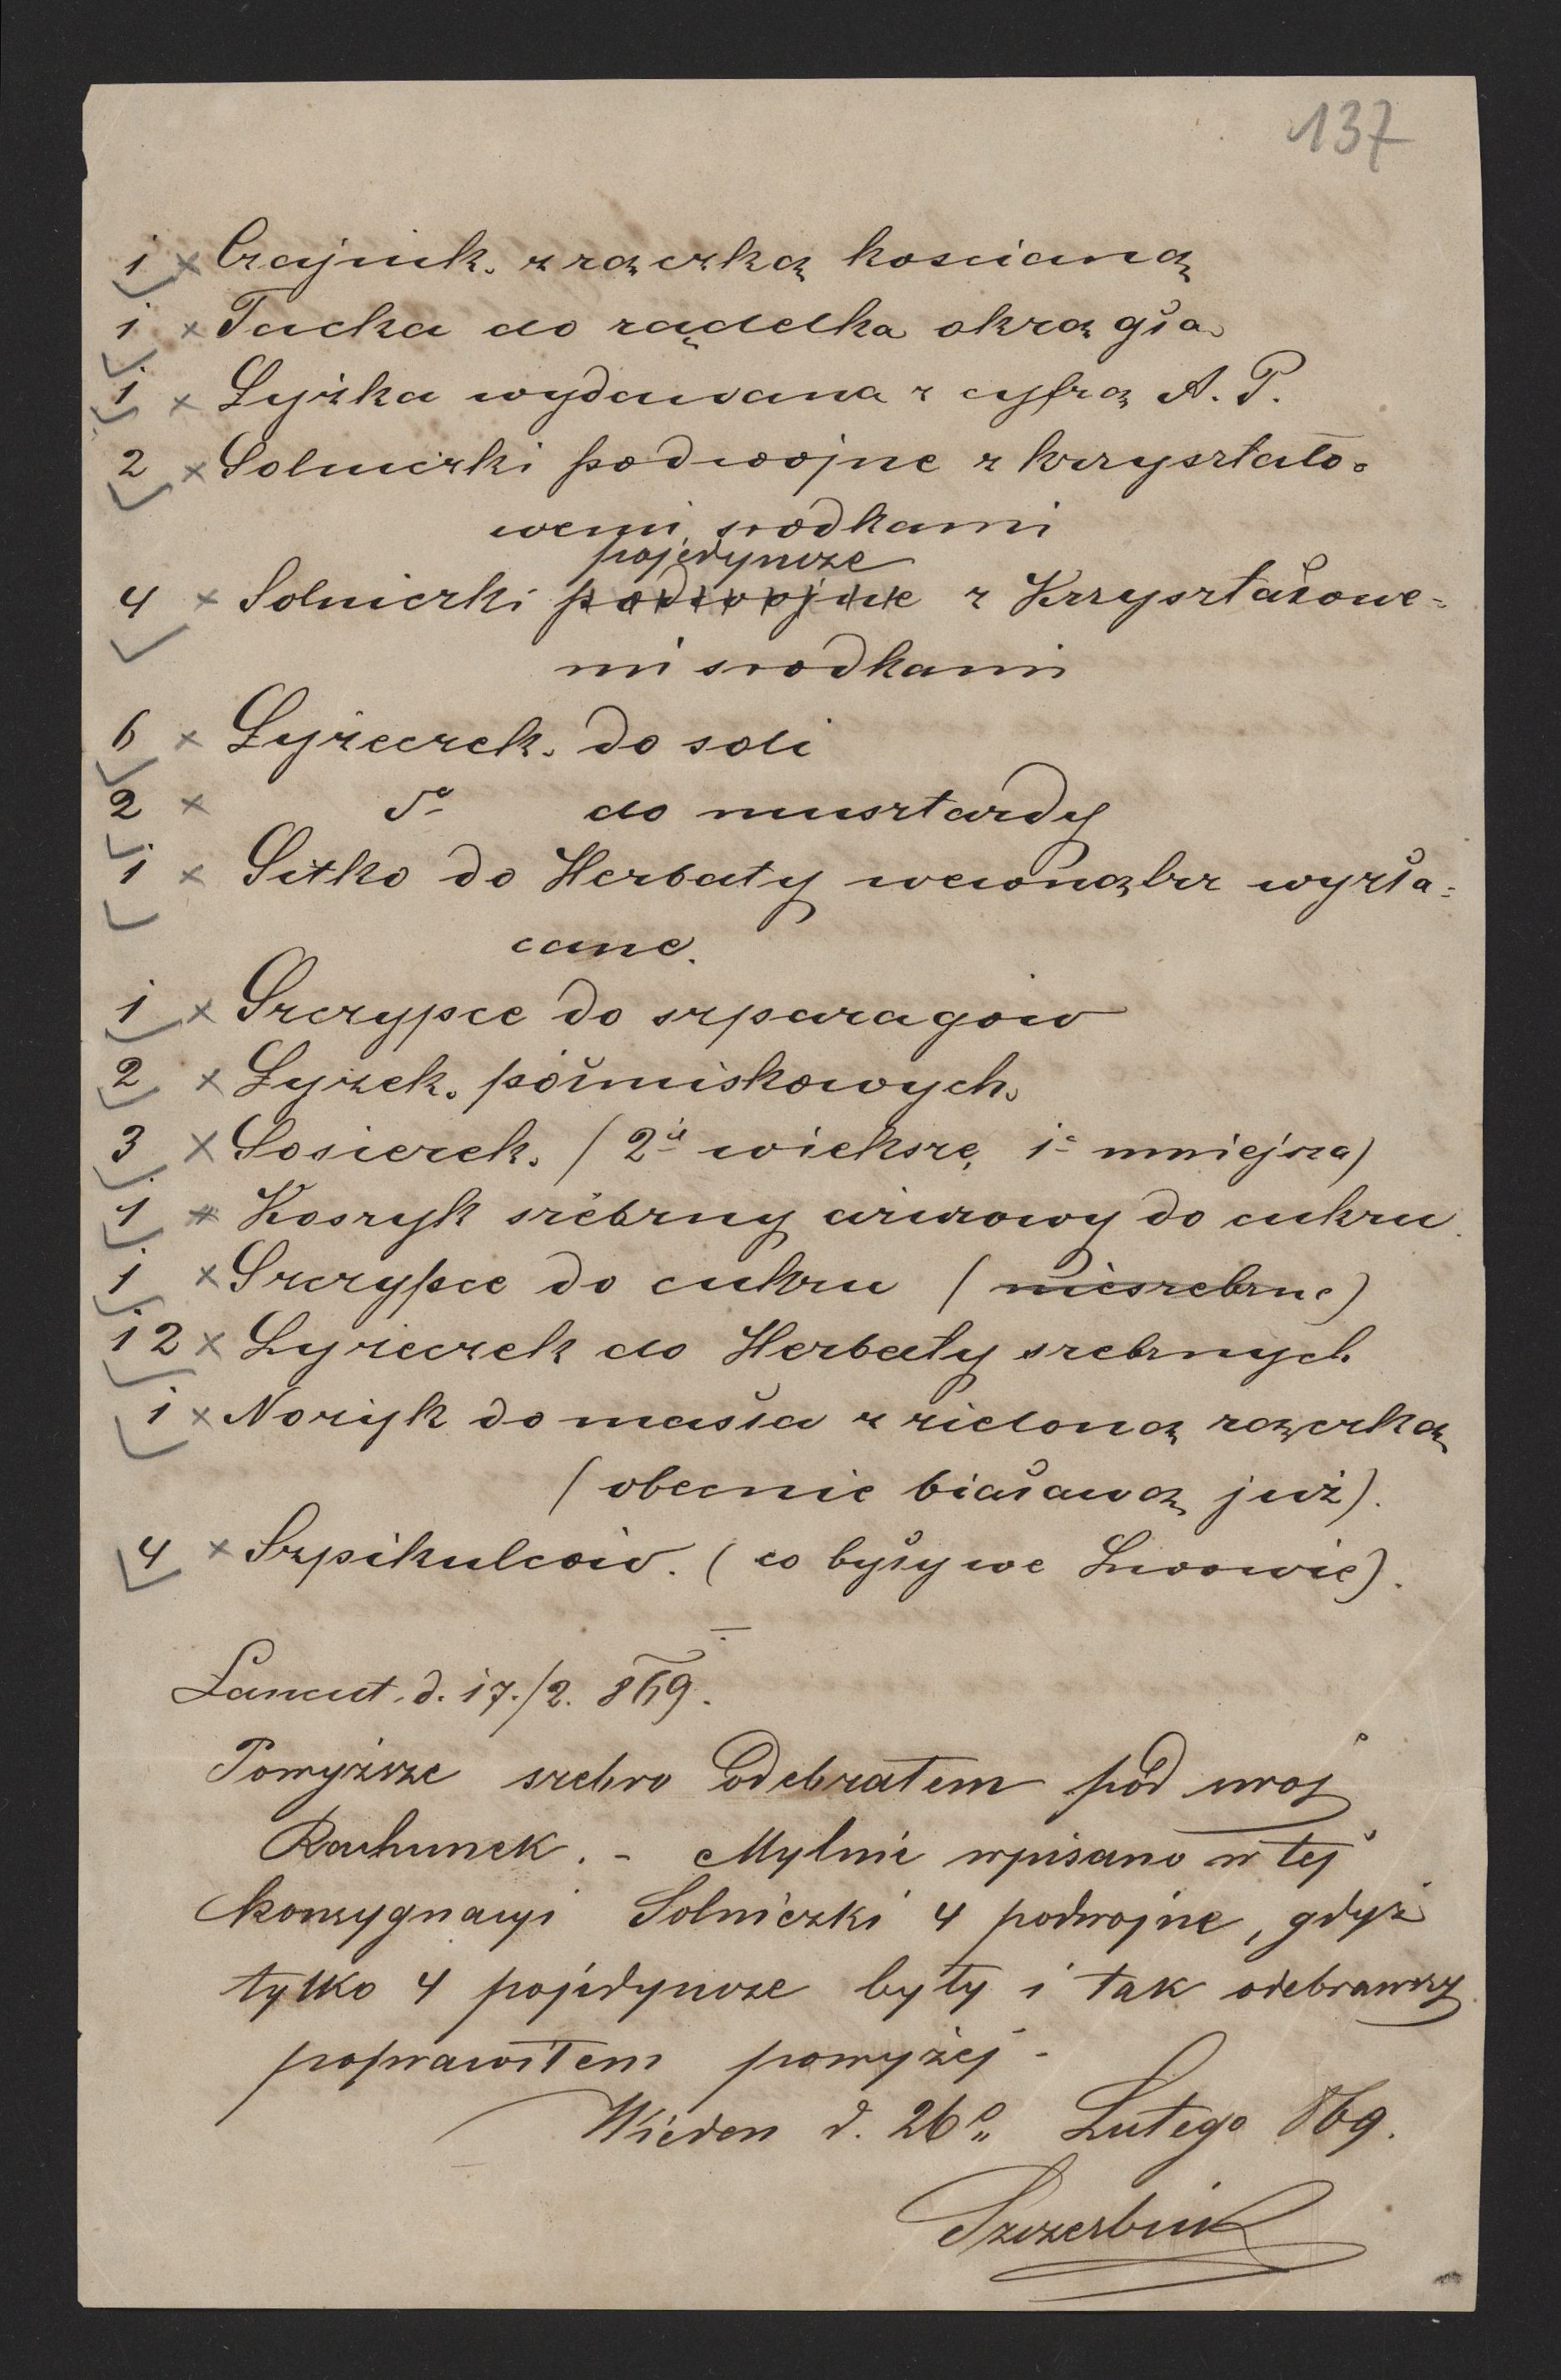 137
1 × Czajnik. z rączką kościaną
1 × Tacka do rądelka okrągła
1 × Łyżka wydawana z cyfrą A. P.
2 × Solniczki podwojne z krzyształo-
wemi srodkami
pojedyncze
4 × Solniczki podwojne z Krzyształowe-
mi srodkami
6 × Łyżeczek. do soli
2 × do do musztardy
1 × Sitko do Herbaty wewnątrz wyzła-
cane.
1 × Szczypce do szparagów
2 × Łyżek. półmiskowych.
3 × Sosierek. (2ie wieksze, 1a mniejsza)
1 × Koszyk srebrny ażurowy do cukru.
1 × Szczypce do cukru (niesrebrne)
12 × Łyżeczek do Herbaty srebrnych
1 × Nożyk do masła z zieloną rączką
(obecnie białawą już).
4 × Szpikulców. (co były we Lwowie).
Łancut. d. 17./2. 869.
Powyższe srebro Odebrałem pod moj
Rachunek. - Mylnie wpisano w tej
konsygnacyi Solniczki 4 podwojne, gdyż
tylko 4 pojedyncze były i tak odebrawszy
poprawiłem powyżej -
Wieden d. 26o„ Lutego 869.